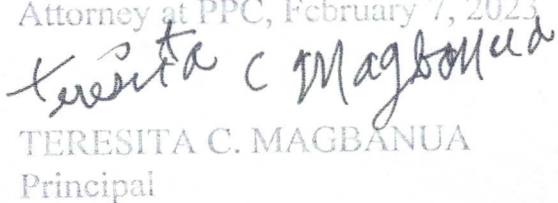 Attorney at PPC, February 7, 2023
Teresita C Magbanua
TERESITA C. MAGBANUA
Principal